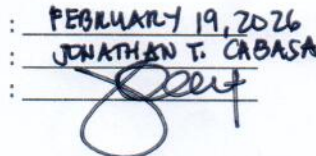 : FEBRUARY 19, 2026
: JONATHAN T. CABASA
: